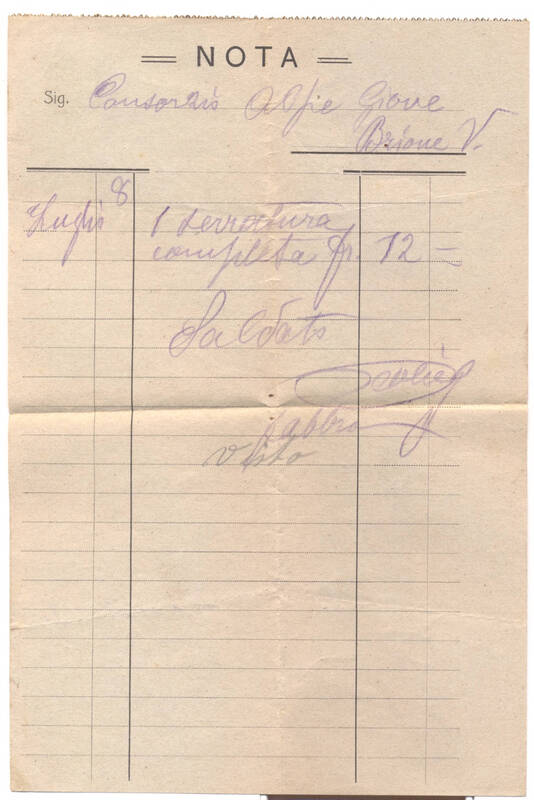 NOTA
Sig. Consorzio Alpe Gione
Brione V.
Luglio 8 1 serratura
completa fr. 12 —
Saldato
fabbro
visto